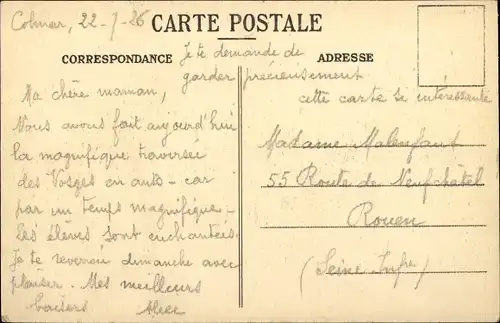 Colmar, 22-7-26
CARTE POSTALE
CORRESPONDANCE
ADRESSE
Je te demande de
garder précieusement
cette carte si intéressante
Ma chère maman,
Nous avons fait aujourd'hui
la magnifique traversée
des Vosges en auto - car
par un temps magnifique -
Les élèves sont enchantées.
Je te reverrai dimanche avec
plaisir. Mes meilleurs
baisers Alice
Madame Malenfant
55 Route de Neufchâtel
Rouen
(Seine Infre)